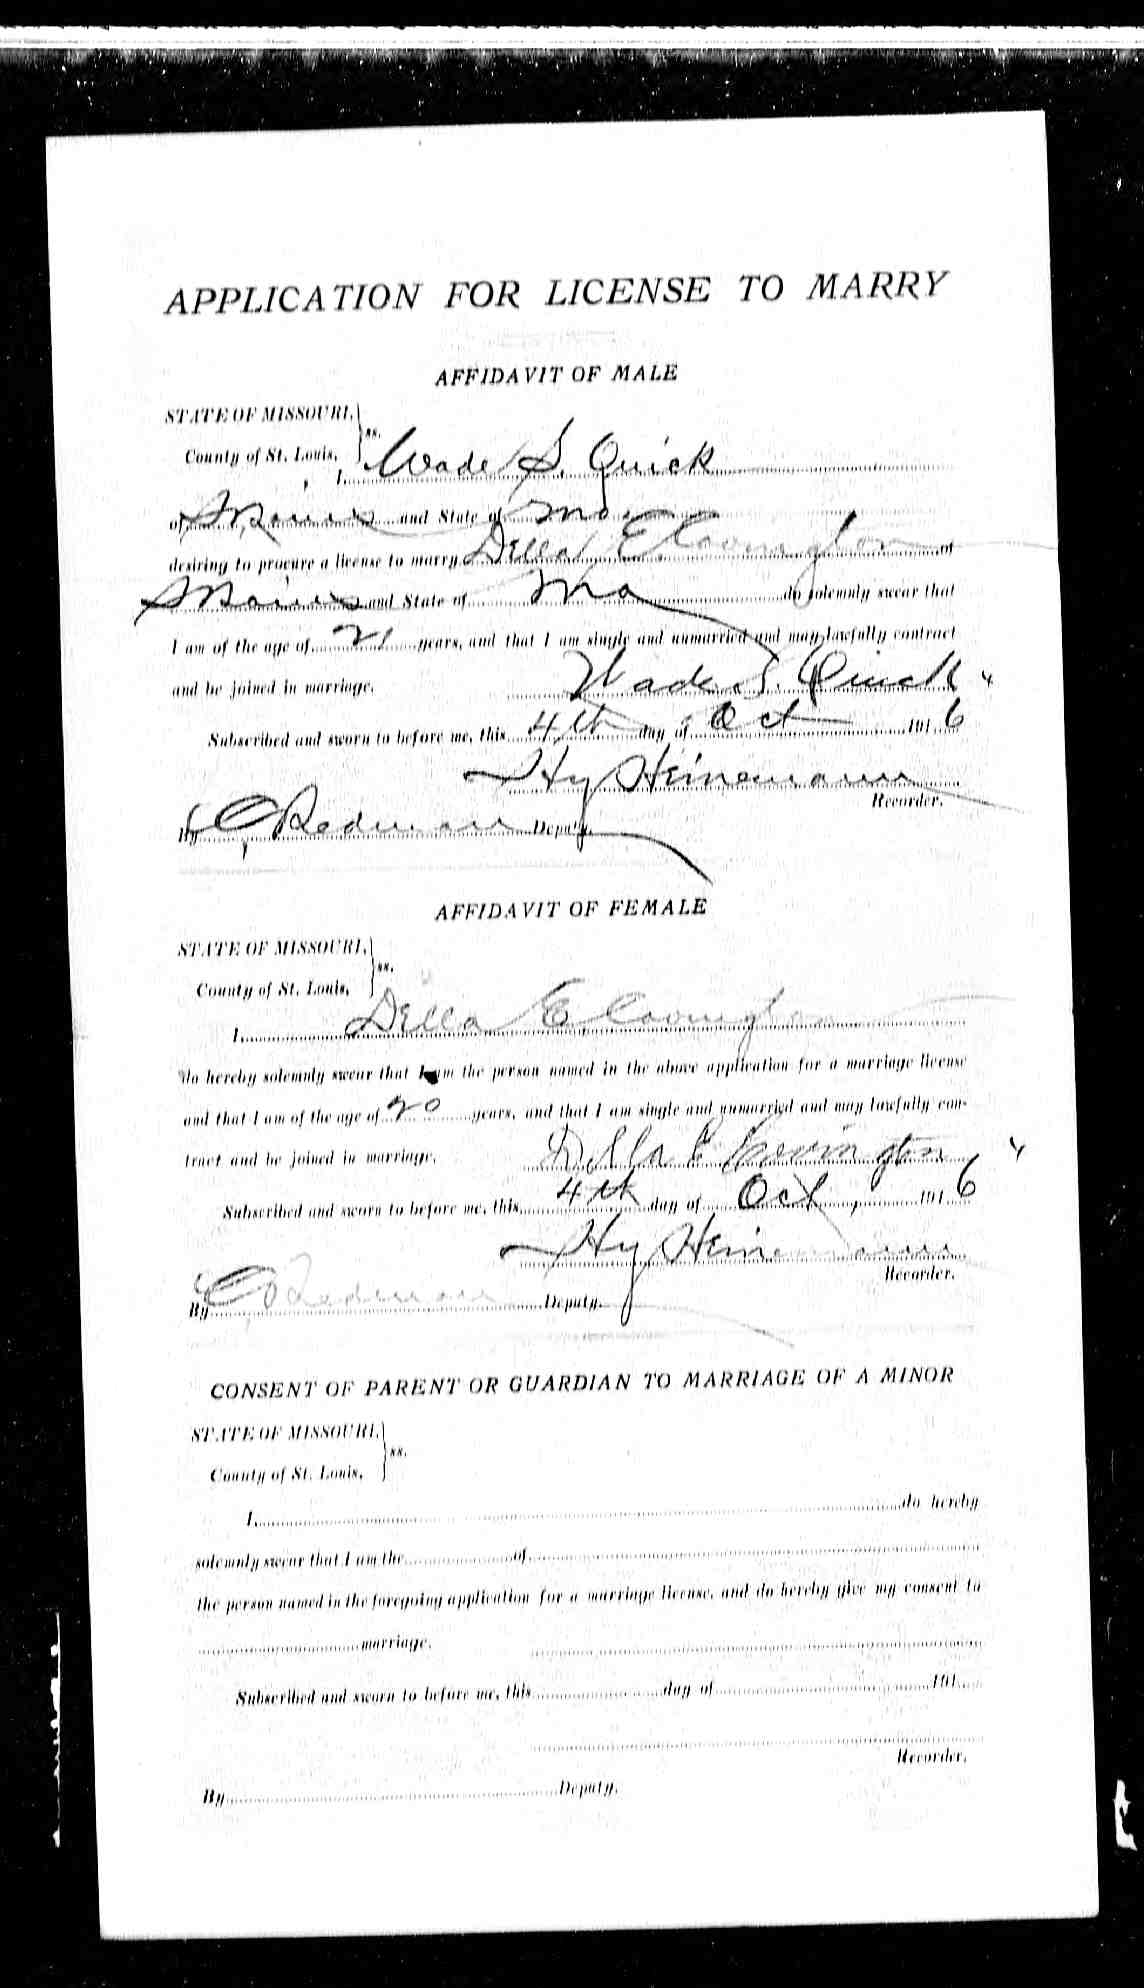 APPLICATION FOR LICENSE TO MARRY
AFFIDAVIT OF MALE
STATE OF MISSOURI,
County of St. Louis, } ss.
I, Wade S. Quick
of St Louis and State of Mo.
desiring to procure a license to marry Della E Covington of
St Louis and State of Mo do solemnly swear that
I am of the age of 21 years, and that I am single and unmarried and may lawfully contract
and be joined in marriage. Wade S. Quick
Subscribed and sworn to before me, this 4th day of Oct 1916
Hy Heinemann
Recorder.
By Redman Deputy.
AFFIDAVIT OF FEMALE
STATE OF MISSOURI,
County of St. Louis, } ss.
I, Della E Covington
do hereby solemnly swear that I am the person named in the above application for a marriage license
and that I am of the age of 20 years, and that I am single and unmarried and may lawfully con-
tract and be joined in marriage. Della E Covington
Subscribed and sworn to before me, this 4th day of Oct, 1916
Hy Heinemann
Recorder.
By Redman Deputy.
CONSENT OF PARENT OR GUARDIAN TO MARRIAGE OF A MINOR
STATE OF MISSOURI,
County of St. Louis, } ss.
I, do hereby
solemnly swear that I am the of
the person named in the foregoing application for a marriage license, and do hereby give my consent to
marriage.
Subscribed and sworn to before me, this day of 191
Recorder.
By Deputy.